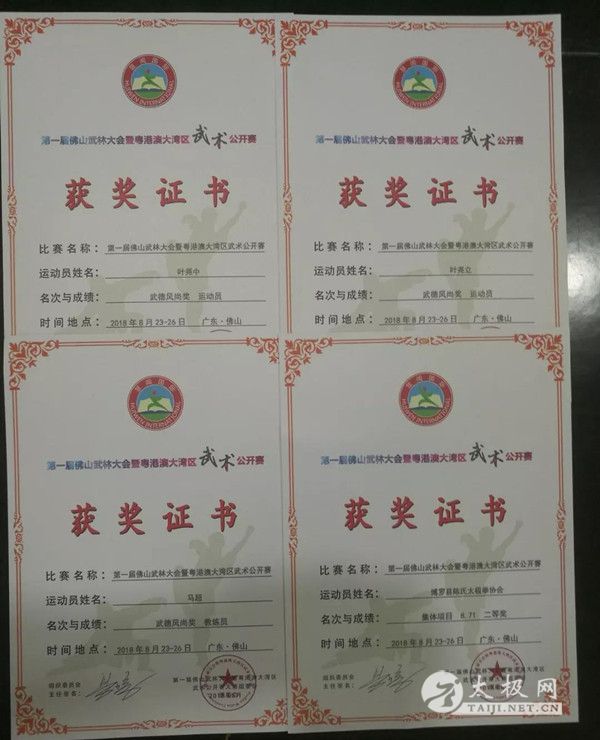 第一届佛山武林大会暨粤港澳大湾区武术公开赛
获奖证书
比赛名称：第一届佛山武林大会暨粤港澳大湾区武术公开赛
运动员姓名：叶尧中
名次与成绩：武德风尚奖 运动员
时间地点：2018年8月23-26日 广东·佛山
第一届佛山武林大会暨粤港澳大湾区武术公开赛
获奖证书
比赛名称：第一届佛山武林大会暨粤港澳大湾区武术公开赛
运动员姓名：叶尧立
名次与成绩：武德风尚奖 运动员
时间地点：2018年8月23-26日 广东·佛山
第一届佛山武林大会暨粤港澳大湾区武术公开赛
获奖证书
比赛名称：第一届佛山武林大会暨粤港澳大湾区武术公开赛
运动员姓名：马超
名次与成绩：武德风尚奖 教练员
时间地点：2018年8月23-26日 广东·佛山
组织委员会
主任签名：
第一届佛山武林大会暨粤港澳大湾区
第一届佛山武林大会暨粤港澳大湾区武术公开赛
获奖证书
比赛名称：第一届佛山武林大会暨粤港澳大湾区武术公开赛
运动员姓名：博罗县陈氏太极拳协会
名次与成绩：集体项目 8.71 二等奖
时间地点：2018年8月23-26日 广东·佛山
组织委员会
主任签名：
太极网
TAIJI.NET.CN